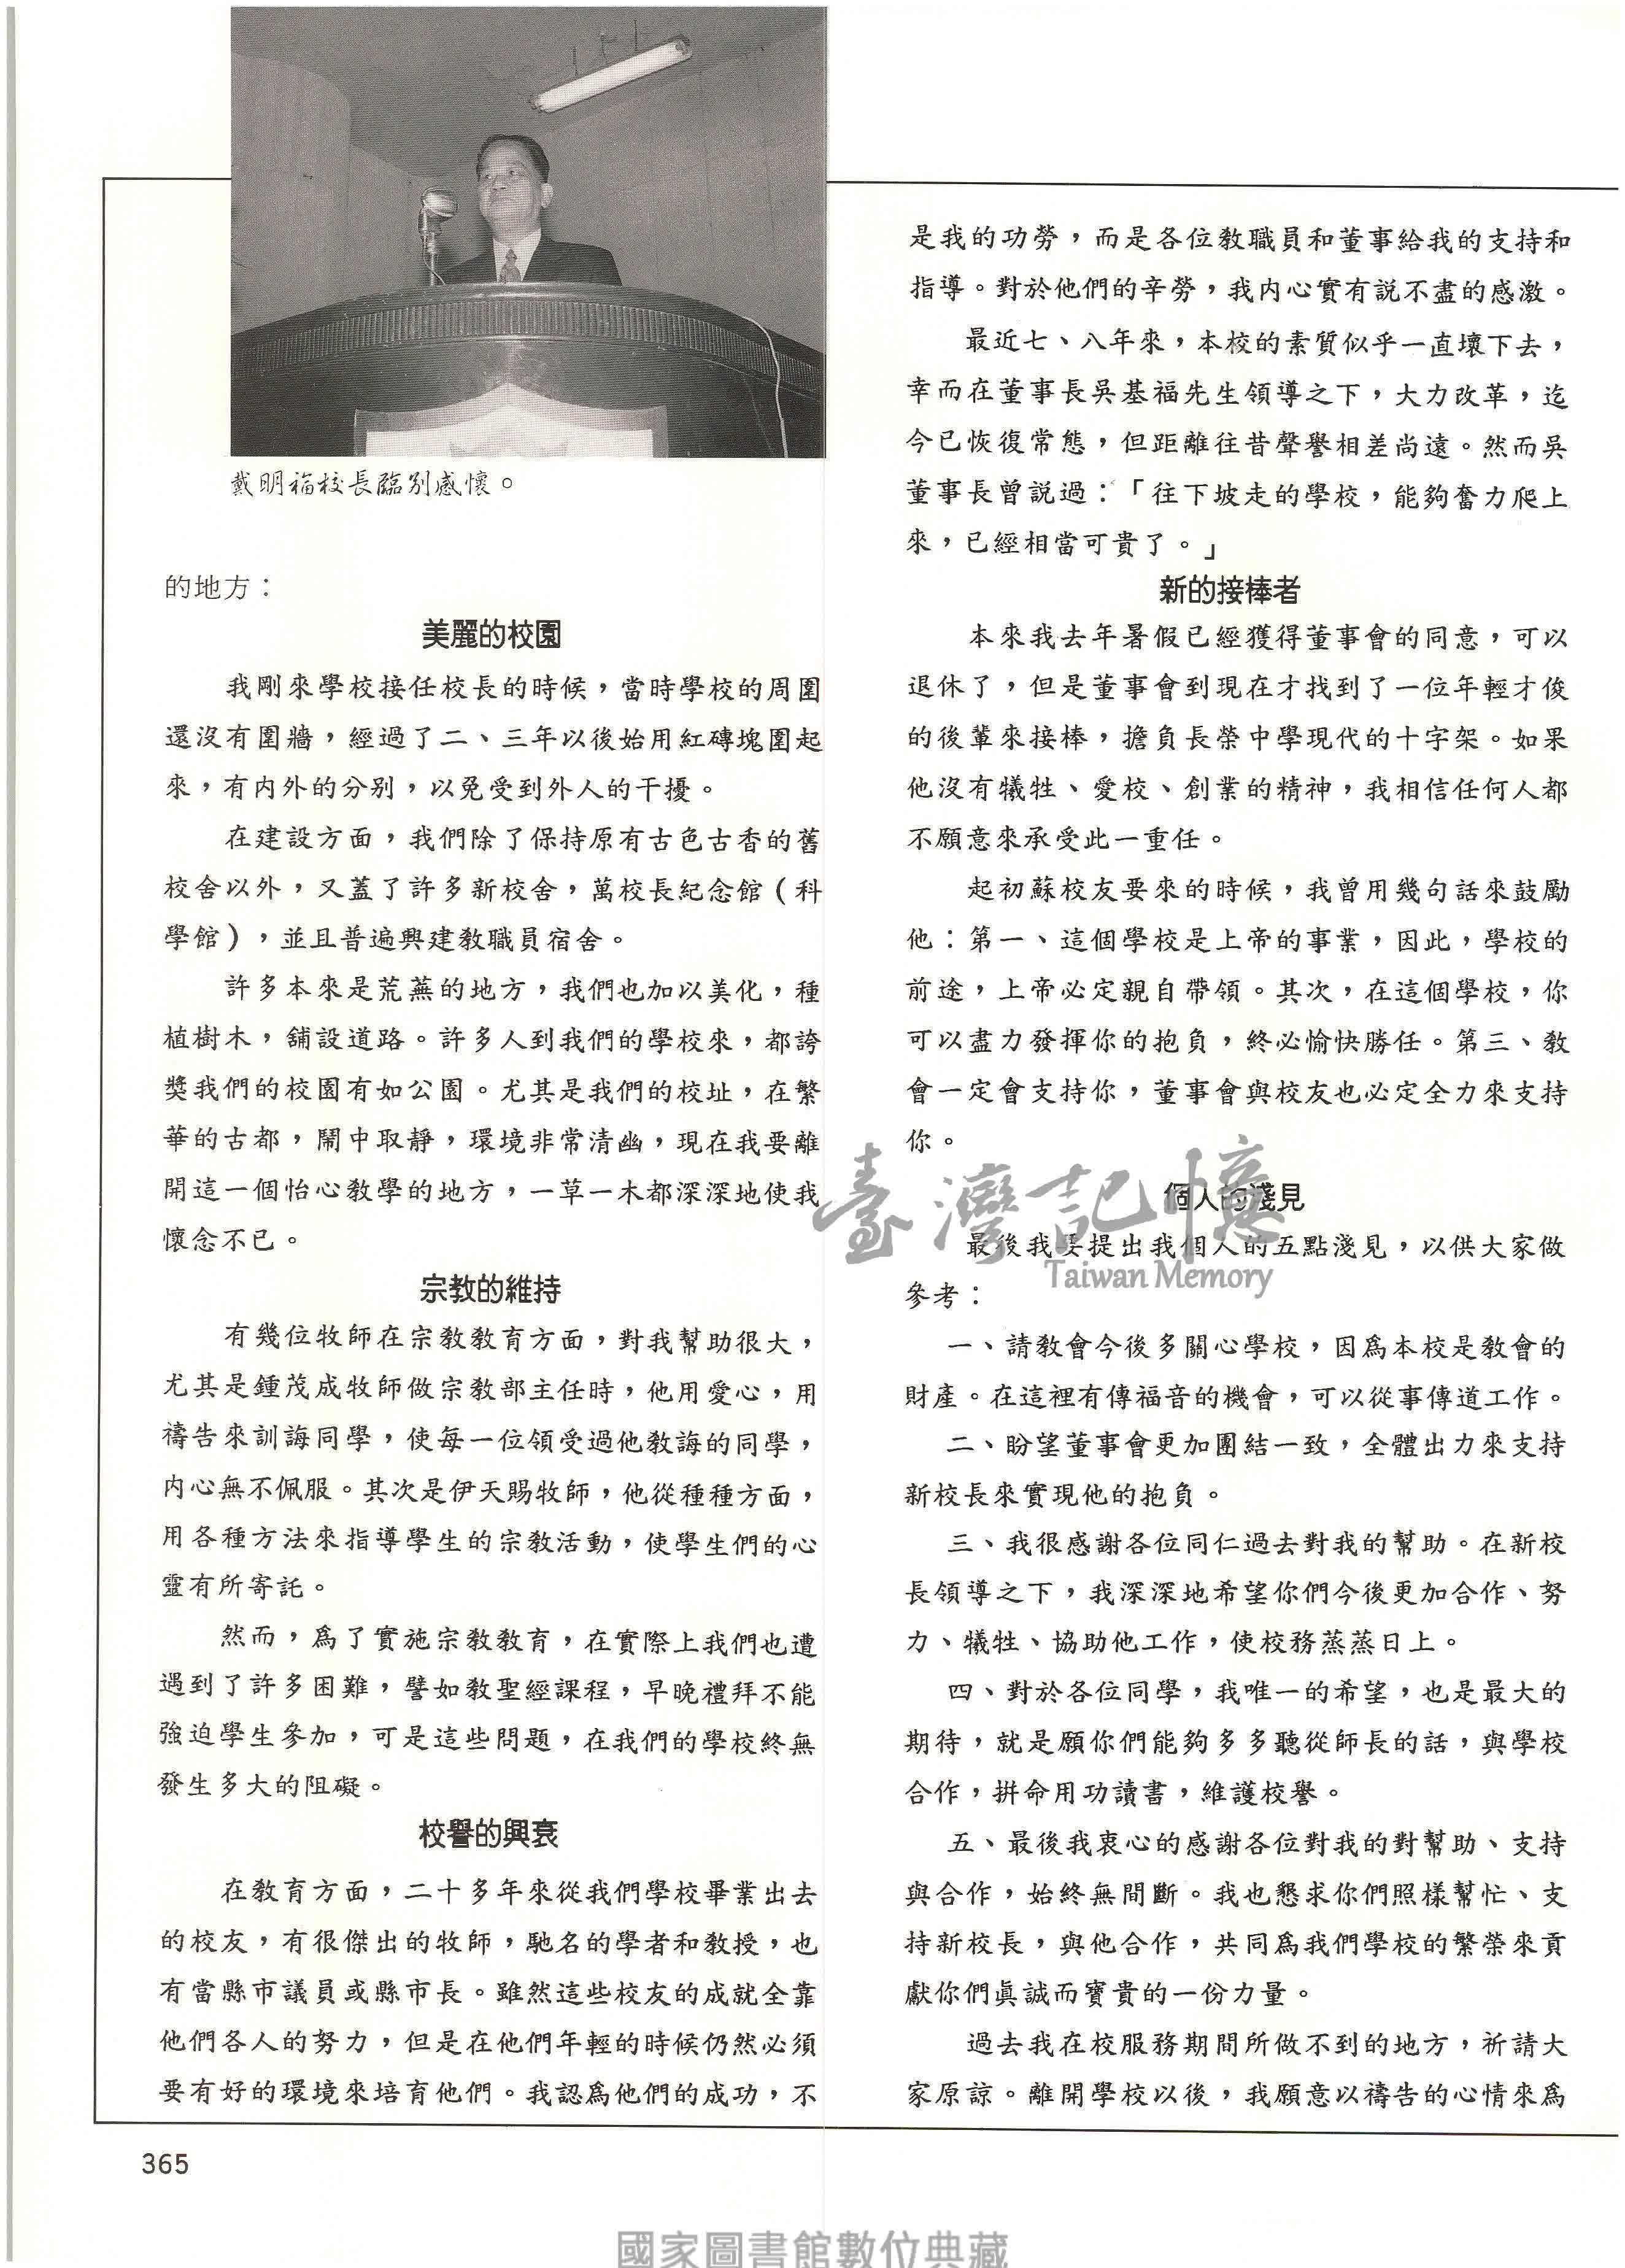 戴明福校長臨別感懷。
的地方：
美麗的校園
我剛來學校接任校長的時候，當時學校的周圍
還沒有圍牆，經過了二、三年以後始用紅磚塊圍起
來，有內外的分別，以免受到外人的干擾。
在建設方面，我們除了保持原有古色古香的舊
校舍以外，又蓋了許多新校舍，萬校長紀念館（科
學館），並且普遍興建教職員宿舍。
許多本來是荒蕪的地方，我們也加以美化，種
植樹木，舖設道路。許多人到我們的學校來，都誇
獎我們的校園有如公園。尤其是我們的校址，在繁
華的古都，鬧中取靜，環境非常清幽，現在我要離
開這一個怡心教學的地方，一草一木都深深地使我
懷念不已。
宗教的維持
有幾位牧師在宗教教育方面，對我幫助很大，
尤其是鍾茂成牧師做宗教部主任時，他用愛心，用
禱告來訓誨同學，使每一位領受過他教誨的同學，
內心無不佩服。其次是伊天賜牧師，他從種種方面，
用各種方法來指導學生的宗教活動，使學生們的心
靈有所寄託。
然而，為了實施宗教教育，在實際上我們也遭
遇到了許多困難，譬如教聖經課程，早晚禮拜不能
強迫學生參加，可是這些問題，在我們的學校終無
發生多大的阻礙。
校譽的興衰
在教育方面，二十多年來從我們學校畢業出去
的校友，有很傑出的牧師，馳名的學者和教授，也
有當縣市議員或縣市長。雖然這些校友的成就全靠
他們各人的努力，但是在他們年輕的時候仍然必須
要有好的環境來培育他們。我認為他們的成功，不
是我的功勞，而是各位教職員和董事給我的支持和
指導。對於他們的辛勞，我內心實有說不盡的感激。
最近七、八年來，本校的素質似乎一直壞下去，
幸而在董事長吳基福先生領導之下，大力改革，迄
今已恢復常態，但距離往昔聲譽相差尚遠。然而吳
董事長曾說過：「往下坡走的學校，能夠奮力爬上
來，已經相當可貴了。」
新的接棒者
本來我去年暑假已經獲得董事會的同意，可以
退休了，但是董事會到現在才找到了一位年輕才俊
的後輩來接棒，擔負長榮中學現代的十字架。如果
他沒有犧牲、愛校、創業的精神，我相信任何人都
不願意來承受此一重任。
起初蘇校友要來的時候，我曾用幾句話來鼓勵
他：第一、這個學校是上帝的事業，因此，學校的
前途，上帝必定親自帶領。其次，在這個學校，你
可以盡力發揮你的抱負，終必愉快勝任。第三、教
會一定會支持你，董事會與校友也必定全力來支持
你。
個人的淺見
最後我要提出我個人的五點淺見，以供大家做
參考：
一、請教會今後多關心學校，因為本校是教會的
財產。在這裡有傳福音的機會，可以從事傳道工作。
二、盼望董事會更加團結一致，全體出力來支持
新校長來實現他的抱負。
三、我很感謝各位同仁過去對我的幫助。在新校
長領導之下，我深深地希望你們今後更加合作、努
力、犧牲、協助他工作，使校務蒸蒸日上。
四、對於各位同學，我唯一的希望，也是最大的
期待，就是願你們能夠多多聽從師長的話，與學校
合作，拼命用功讀書，維護校譽。
五、最後我衷心的感謝各位對我的對幫助、支持
與合作，始終無間斷。我也懇求你們照樣幫忙、支
持新校長，與他合作，共同為我們學校的繁榮來貢
獻你們真誠而寶貴的一份力量。
過去我在校服務期間所做不到的地方，祈請大
家原諒。離開學校以後，我願意以禱告的心情來為
365
臺灣記憶
Taiwan Memory
國家圖書館數位典藏